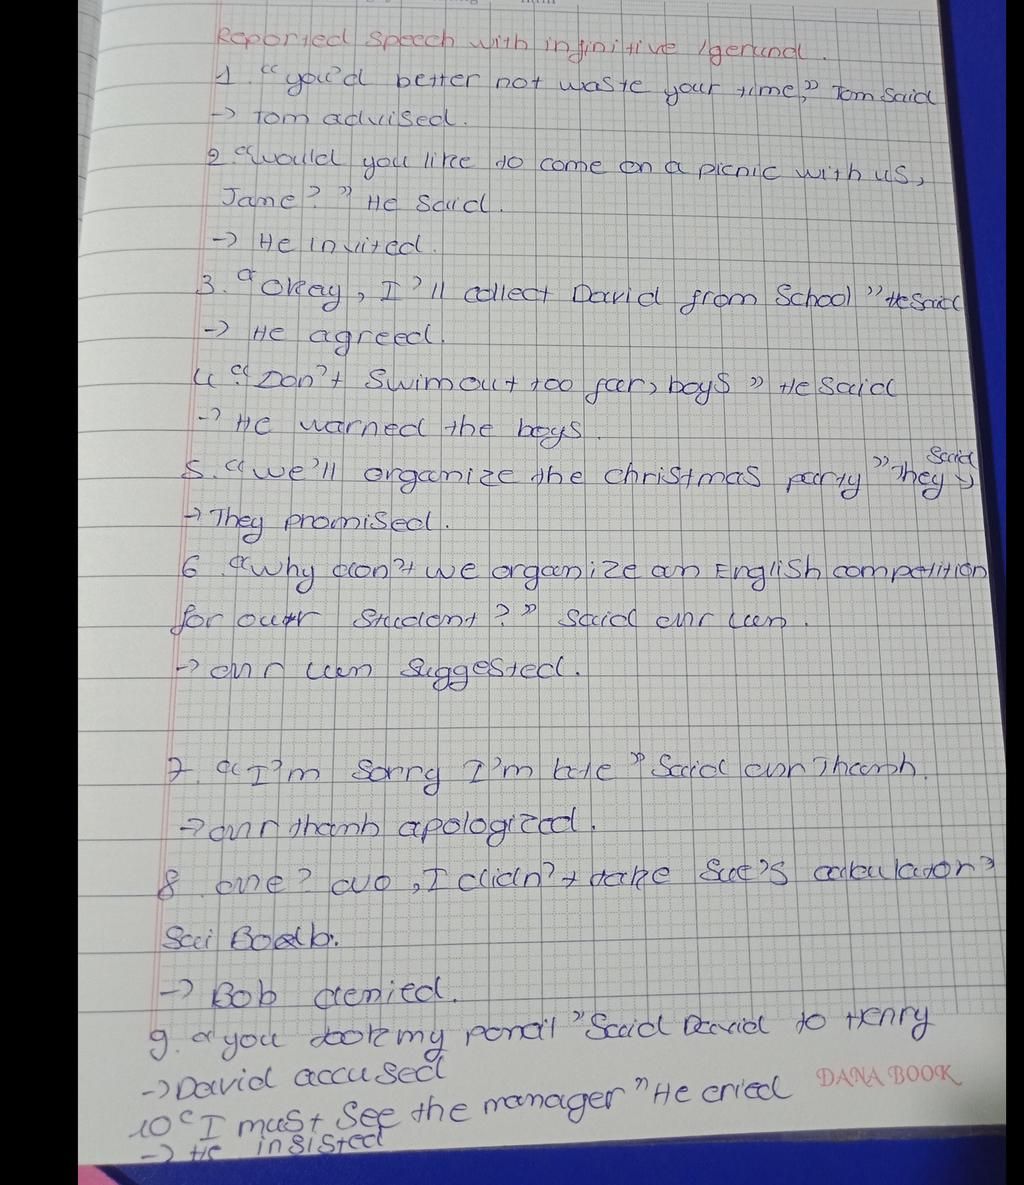 Reported speech with infinitive /gerund.
1 "you'd better not waste your time," Tom Said
-> Tom advised.
2 "would you like to come on a picnic with us,
Jane?" He Said.
-> He invited.
3. "Okay, I'll collect David from School" He Said
-> He agreed.
4 "Don't Swim out too far, boys" He Said
-> He warned the boys.
5. "we'll organize the christmas party" They Said
-> They promised.
6 "why don't we organize an English competition
for our Student?" Said
-> suggested.
7. "I'm Sorry I'm late" Said Thanh.
-> thanh apologized.
8 me? no, I didn't take Sue's calculator"
Sai Bob.
-> Bob denied.
9. "you took my pencil" Said David to Henry
-> David accused
DANA BOOK
10 "I must See the manager" He cried
-> He insisted